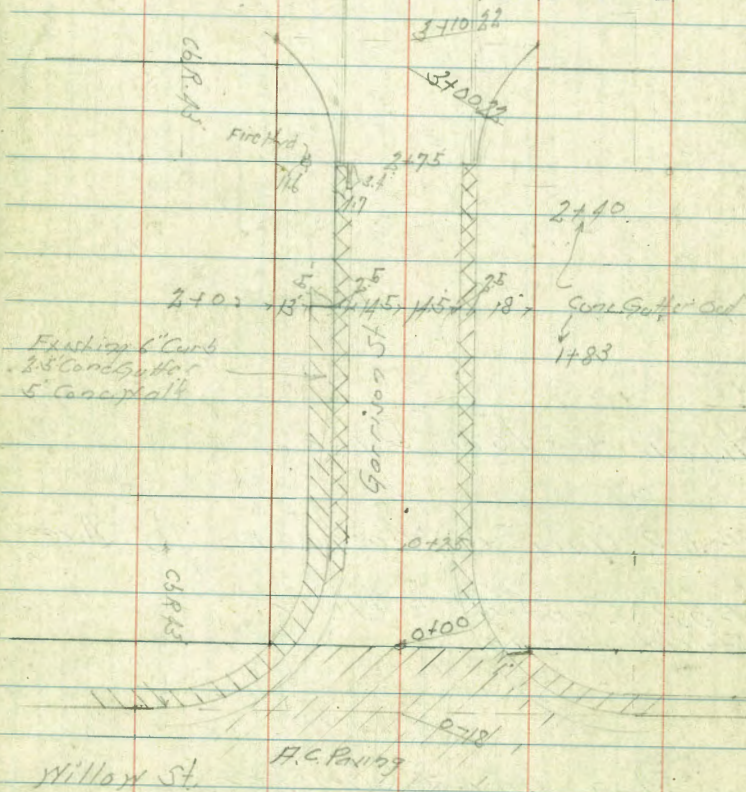 3+10.22
3+00.22
Fire Hyd
11.6
3.4
1.7
2+75
2+40
5'
2.5
2.5
2+0
13'
14.5
14.5
18'
Conc Gutter
1+83
Existing 6" Curb
2.5' Conc Gutter
5' Conc Walk
Garrison St
0+25
0+00
0-18
A.C. Paving
Willow St.